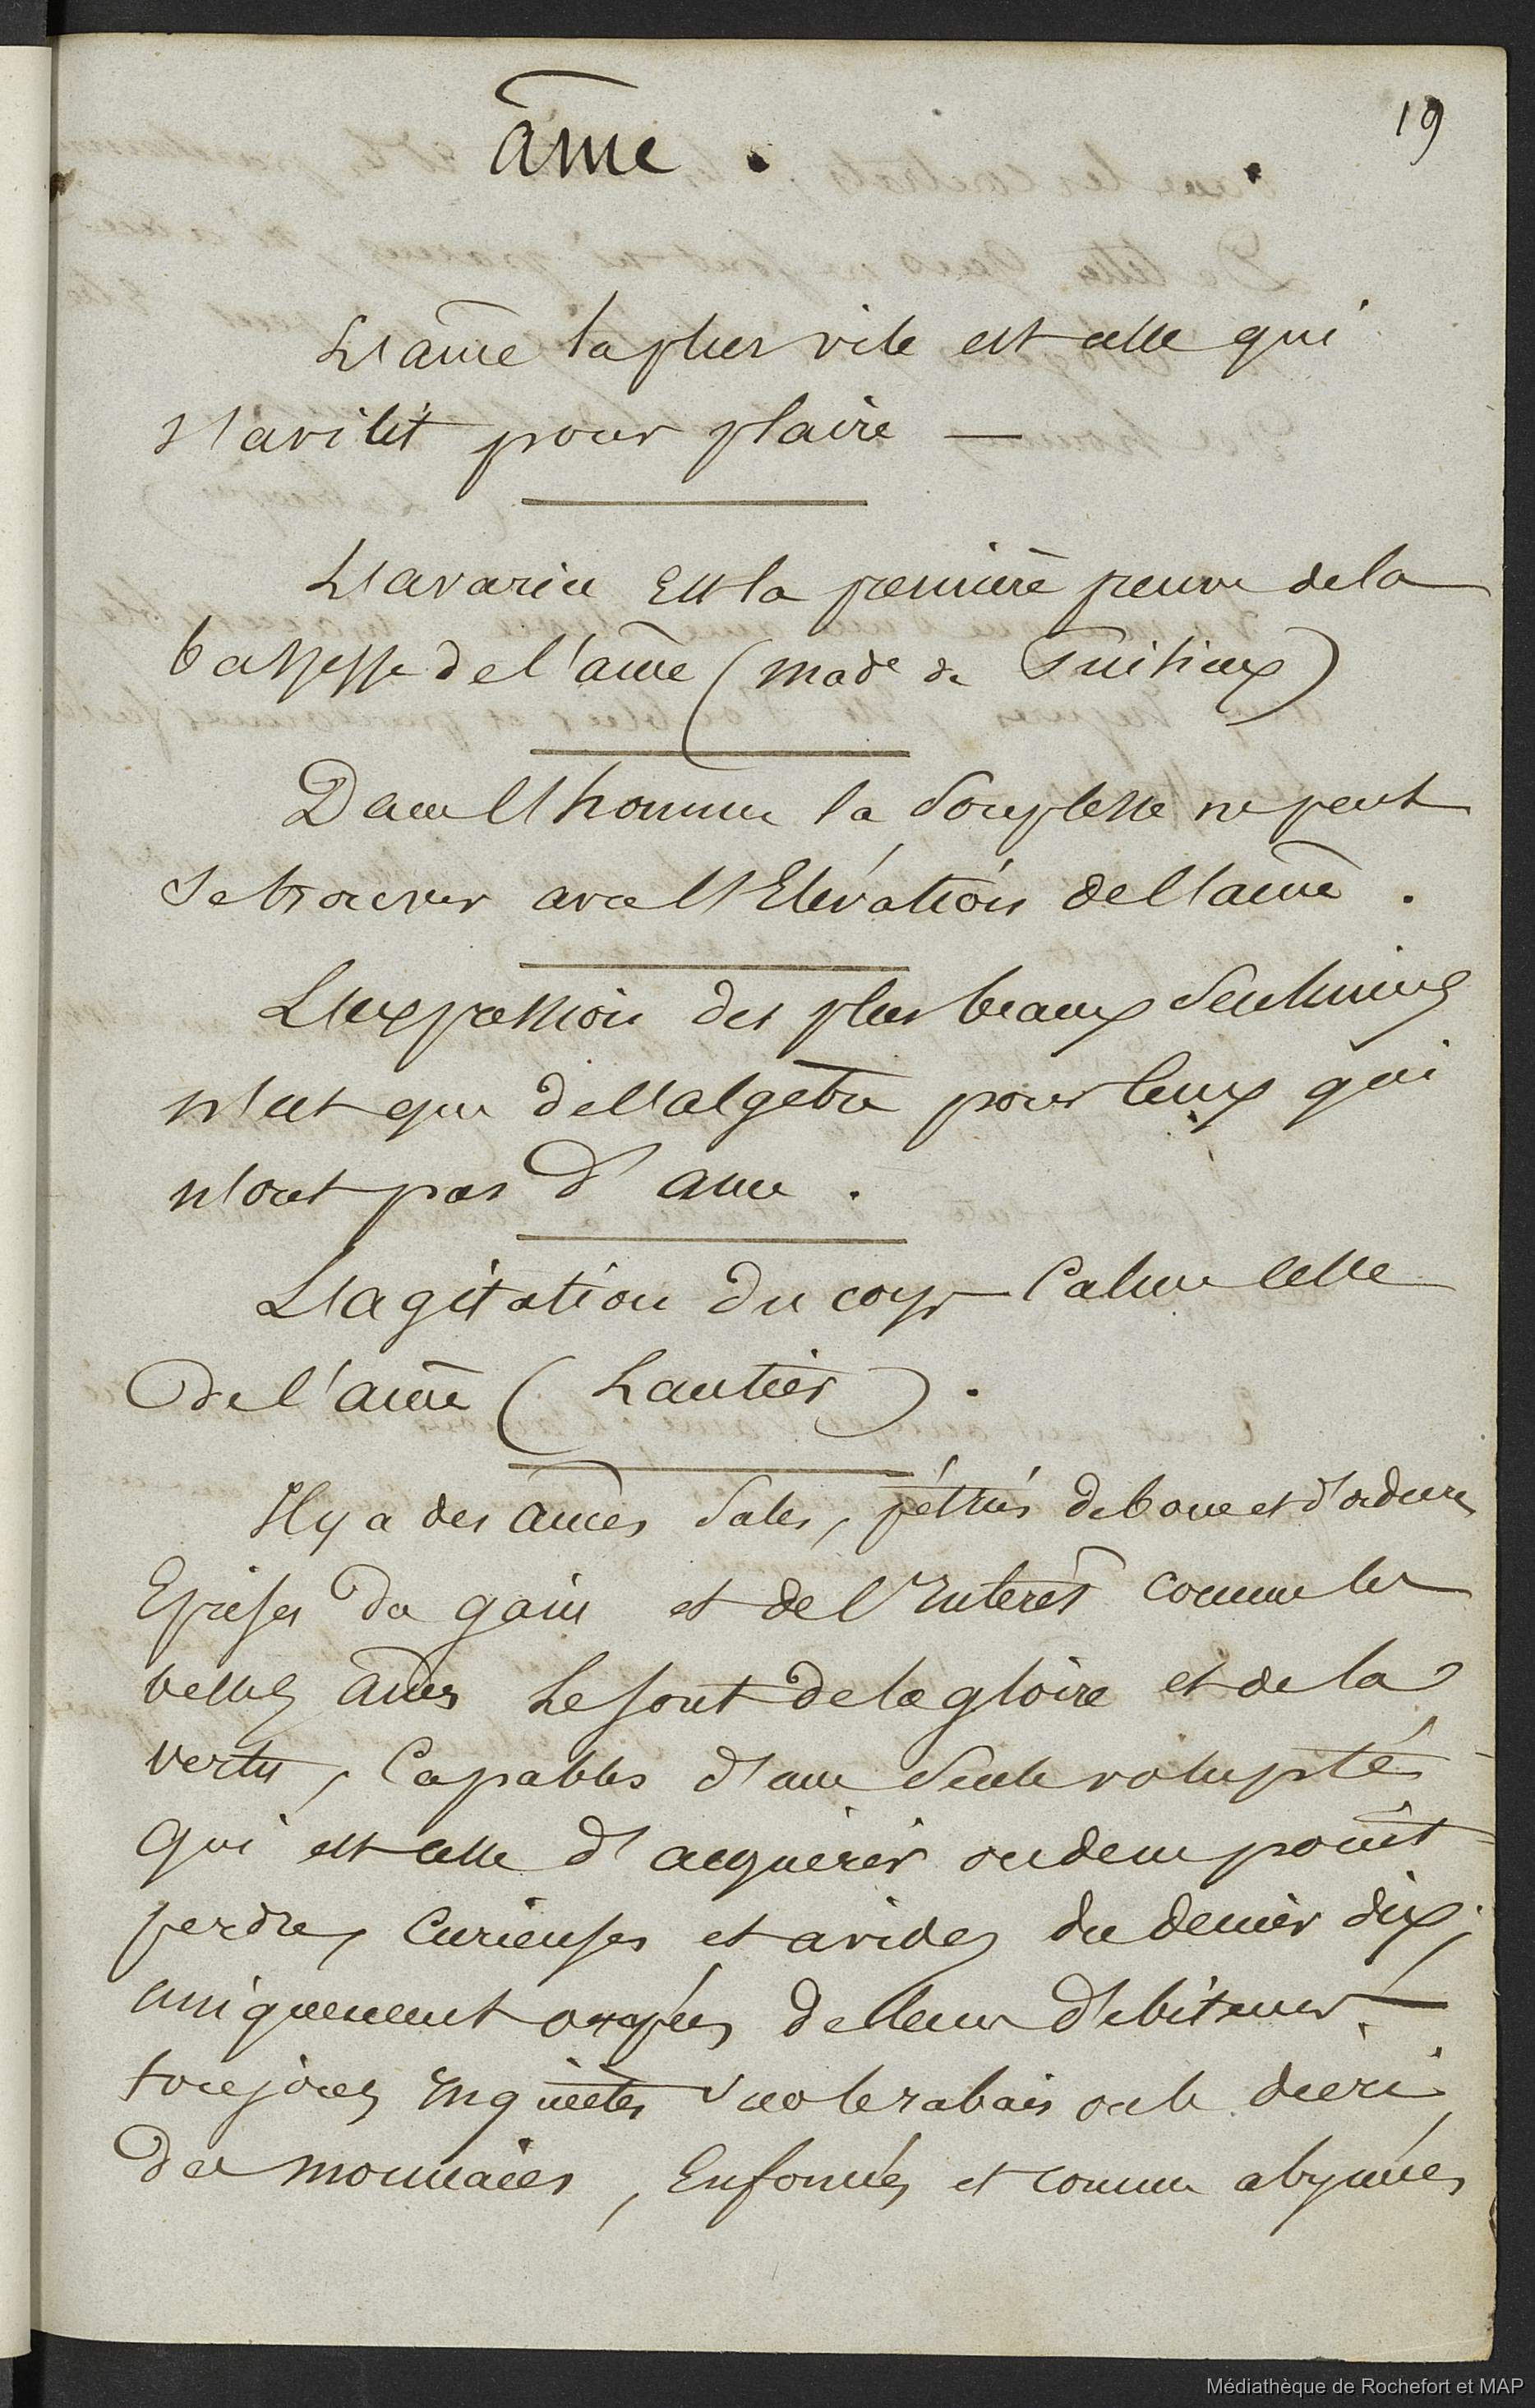 19
âme .
L'âme la plus vile est celle qui
s'avilit pour plaire —
L'avarice Est la première preuve de la
bassesse de l'âme (Made de Puisieux)
Dans l'homme la Souplesse ne peut
se trouver avec l'Elévation de l'âme .
L'expression des plus beaux Sentimens
n'est que de l'algèbre pour Ceux qui
n'ont pas d'ame .
L'agitation du corps Calme Celle
de l'âme ( Lantier ) .
Il y a des âmes Sales, pétries de boue et d'ordure
Eprises du gain et de l'Interêt comme les
belles âmes Le sont de la gloire et de la
vertu, Capables d'une Seule volupté
qui est celle d'acquérir ou de ne point
perdre, Curieuses et avides du denier dix,
uniquement occupées de leurs débiteurs
toujours Inquiètes sur le rabais ou le décri
des monnaies, Enfoncées et comme abymées
Médiathèque de Rochefort et MAP